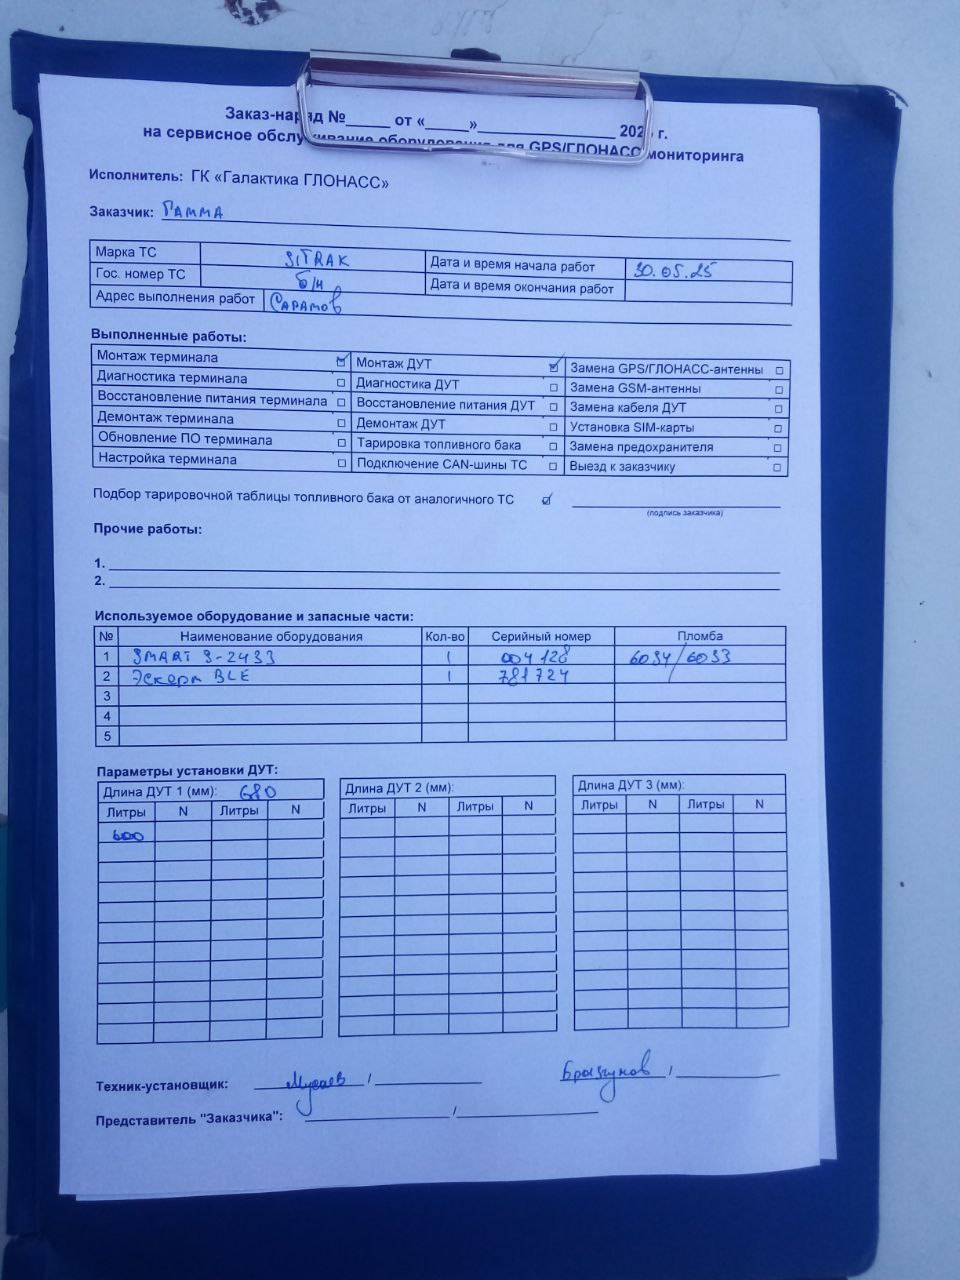 Заказ-наряд №_____ от «_____»_________________ 202 г.
на сервисное обслуживание оборудования для GPS/ГЛОНАСС мониторинга
Исполнитель: ГК «Галактика ГЛОНАСС»
Заказчик: ГАММА
Марка ТС SITRAK Дата и время начала работ 30.05.25
Гос. номер ТС б/н Дата и время окончания работ
Адрес выполнения работ Саратов
Выполненные работы:
Монтаж терминала ☑ Монтаж ДУТ ☑ Замена GPS/ГЛОНАСС-антенны ☐
Диагностика терминала ☐ Диагностика ДУТ ☐ Замена GSM-антенны ☐
Восстановление питания терминала ☐ Восстановление питания ДУТ ☐ Замена кабеля ДУТ ☐
Демонтаж терминала ☐ Демонтаж ДУТ ☐ Установка SIM-карты ☐
Обновление ПО терминала ☐ Тарировка топливного бака ☐ Замена предохранителя ☐
Настройка терминала ☐ Подключение CAN-шины ТС ☐ Выезд к заказчику ☐
Подбор тарировочной таблицы топливного бака от аналогичного ТС ☑
(подпись заказчика)
Прочие работы:
1.
2.
Используемое оборудование и запасные части:
№ Наименование оборудования Кол-во Серийный номер Пломба
1 SMART S-2433 1 004128 6034/6033
2 Эскорт BLE 1 781724
3
4
5
Параметры установки ДУТ:
Длина ДУТ 1 (мм): 680 Длина ДУТ 2 (мм): Длина ДУТ 3 (мм):
Литры N Литры N Литры N Литры N Литры N Литры N
600
Техник-установщик: Мусаев /
Представитель "Заказчика": /